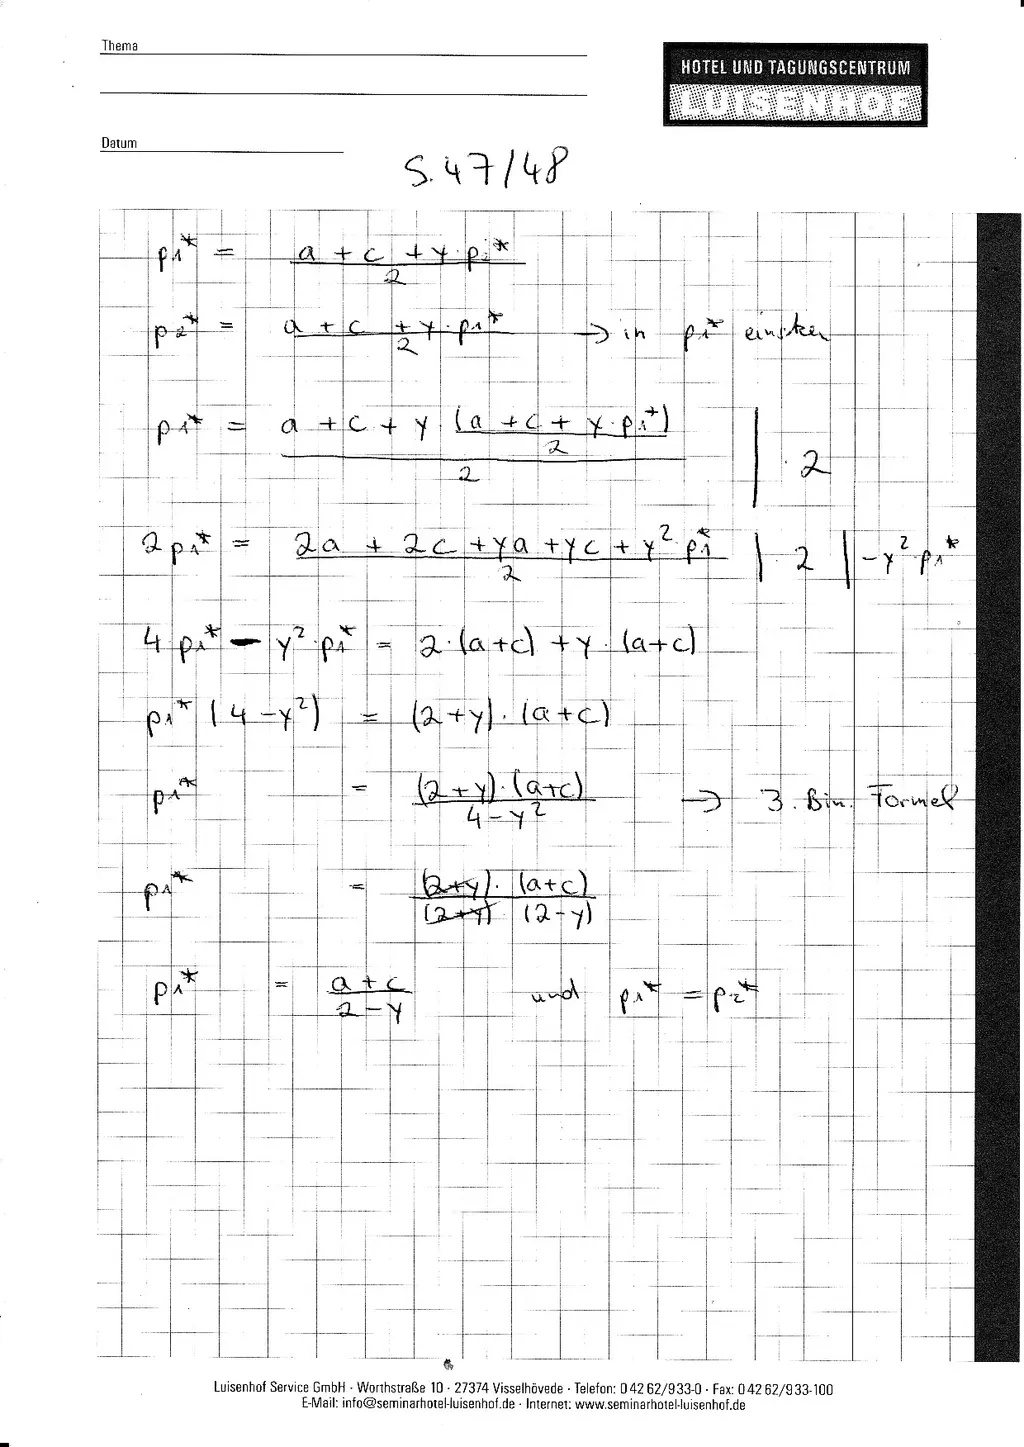 Thema
HOTEL UND TAGUNGSCENTRUM
LUISENHOF
Datum
S. 47/48
p1* = (a + c + y·p2*) / 2
p2* = (a + c + y·p1*) / 2 → in p1* einsetzen
p1* = (a + c + y (a + c + y·p1*) / 2) / 2 | · 2
2p1* = (2a + 2c + ya + yc + y² p1*) / 2 | · 2 | - y² p1*
4 p1* - y²·p1* = 2·(a+c) + y·(a+c)
p1* (4 - y²) = (2+y)·(a+c)
p1* = (2+y)·(a+c) / 4 - y² → 3. Bin. Formel
p1* = (2+y)·(a+c) / (2+y) (2-y)
p1* = a + c / 2 - y und p1* = p2*
Luisenhof Service GmbH · Worthstraße 10 · 27374 Visselhövede · Telefon: 0 42 62/9 33-0 · Fax: 0 42 62/9 33-100
E-Mail: info@seminarhotel-luisenhof.de · Internet: www.seminarhotel-luisenhof.de